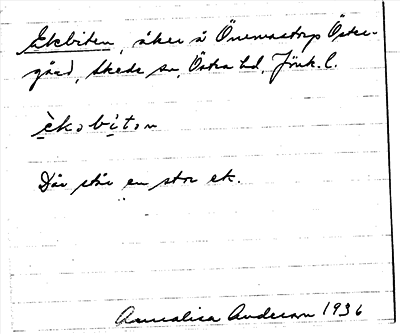 Ekbiten, åker å Önnemastorp Öster-
gård, Skeda sn, Östra hd, Jönk. l.
èkobi̇̀ton
Där står en stor ek.
Annalisa Anderson 1936